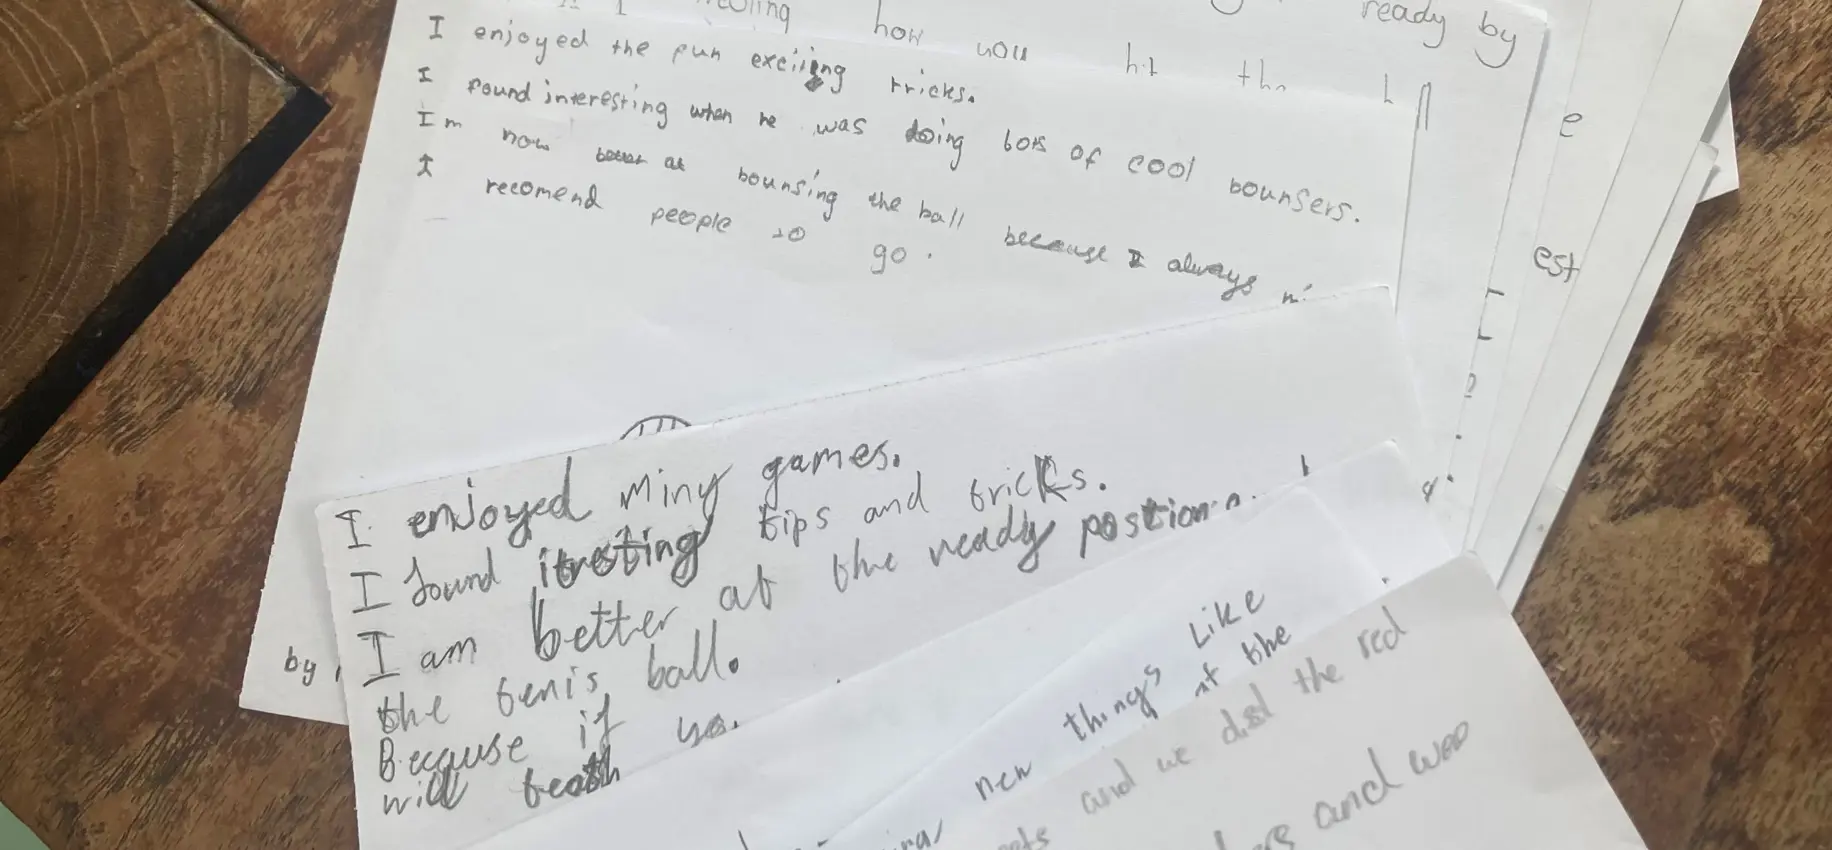 ready by
how you hit the
I enjoyed the fun exciting tricks.
I found interesting when he was doing lots of cool bounsers.
Im now better at bounsing the ball because I always
I recomend people to go.
e
est
I enjoyed miny games.
I found itresting tips and tricks.
I am better at the ready postion
the tenis ball.
Because if yo
will teath
by
new things Like
at the
and we did the red
and was